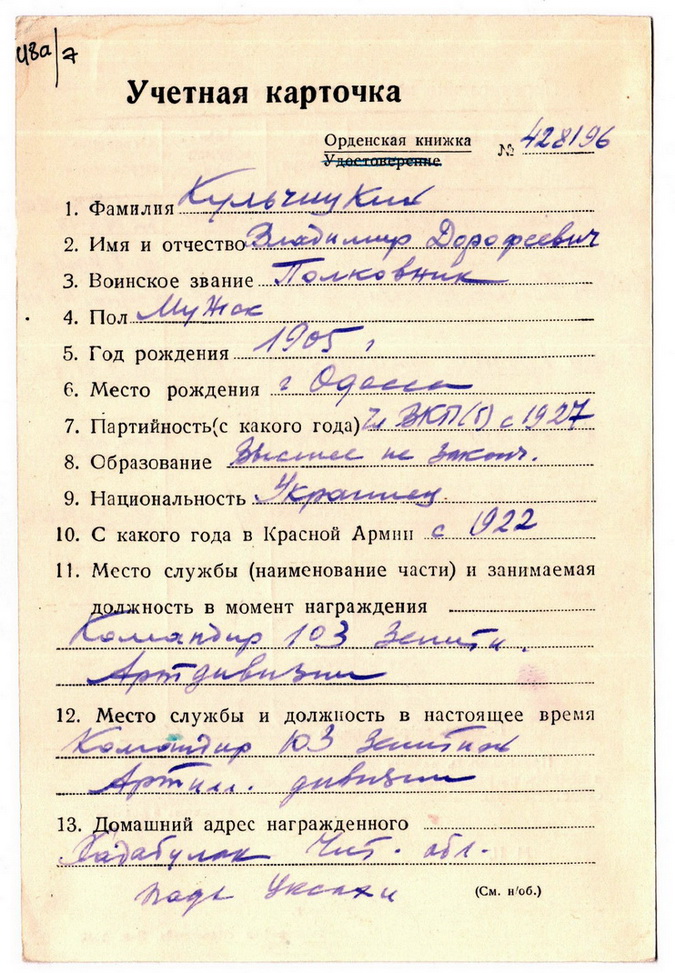 43а/7
Учетная карточка
Орденская книжка
Удостоверение
№ 428196
1. Фамилия Кульчицкий
2. Имя и отчество Владимир Дорофеевич
3. Воинское звание Полковник
4. Пол Мужск
5. Год рождения 1905 г
6. Место рождения г Одесса
7. Партийность(с какого года) Чл ВКП(б) с 1927
8. Образование Высшее не законч.
9. Национальность Украинец
10. С какого года в Красной Армии с 1922
11. Место службы (наименование части) и занимаемая
должность в момент награждения
Командир 103 Зенитн.
Артдивизии
12. Место службы и должность в настоящее время
Командир 103 Зенитной
Артил. дивизии
13. Домашний адрес награжденного
Хадабулак Чит. обл.
падь
(См. н/об.)